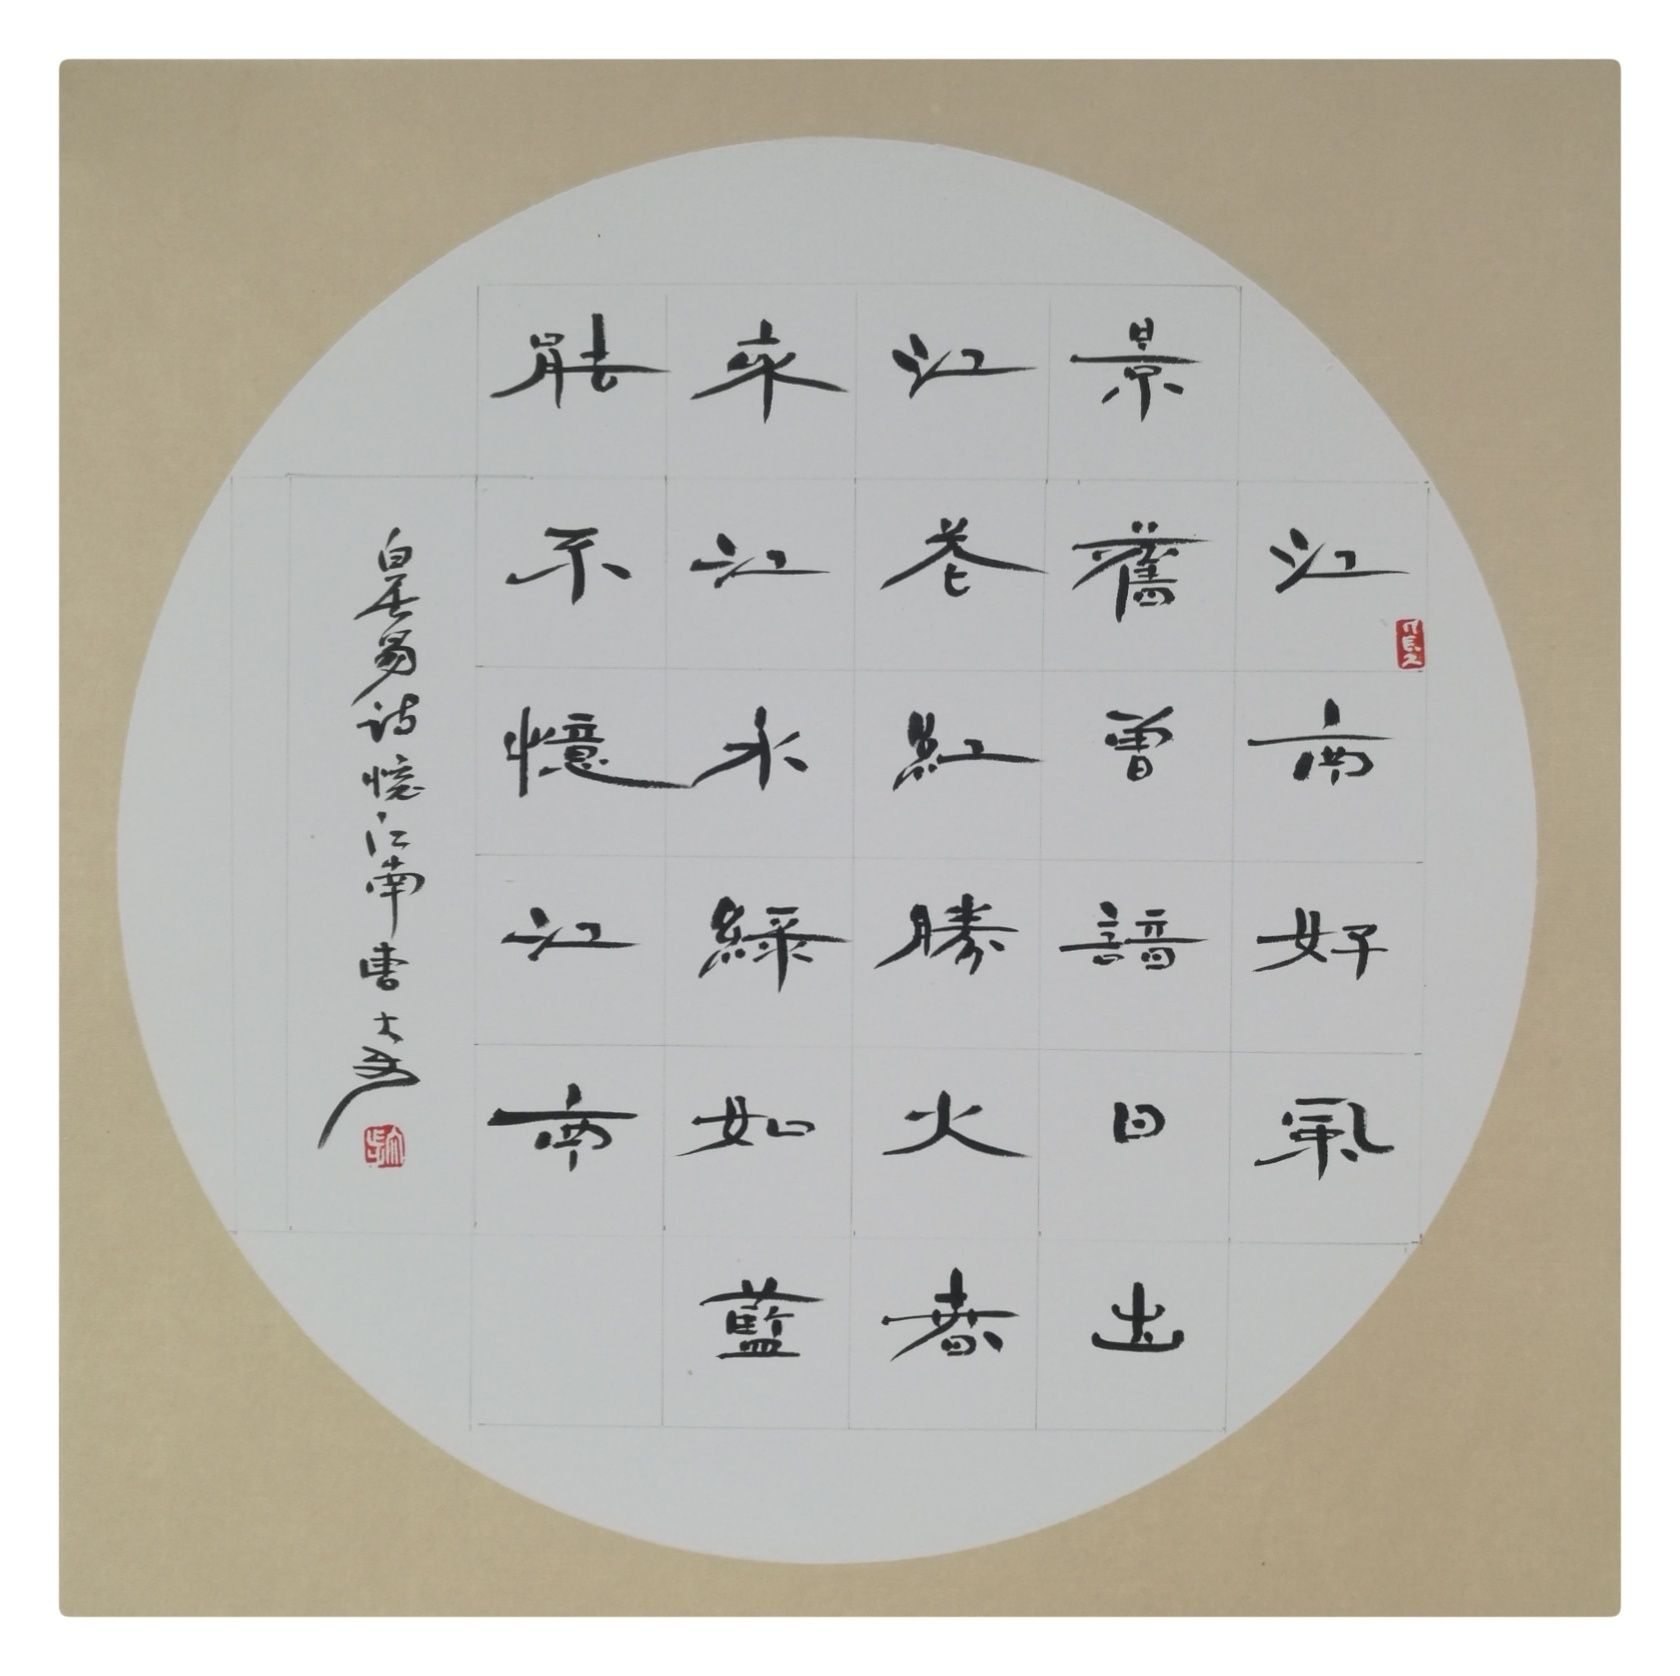 江南好風
景舊曾諳日出
江花紅勝火春
來江水綠如藍
能不憶江南
白居易詩憶江南曹